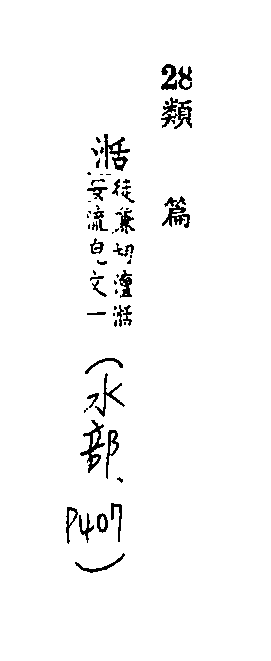 28 類篇
湉
徒兼切澶湉
安流皃文一
(水部、P407)